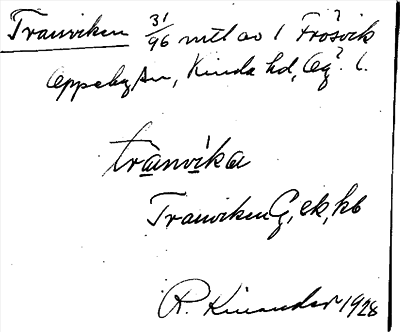 Tranviken 31/96 mtl av 1 Frösvik
Oppeby sn, Kinda hd, Ög. l.
tranvika
Tranviken G, ek, hb
R. Kinander 1928